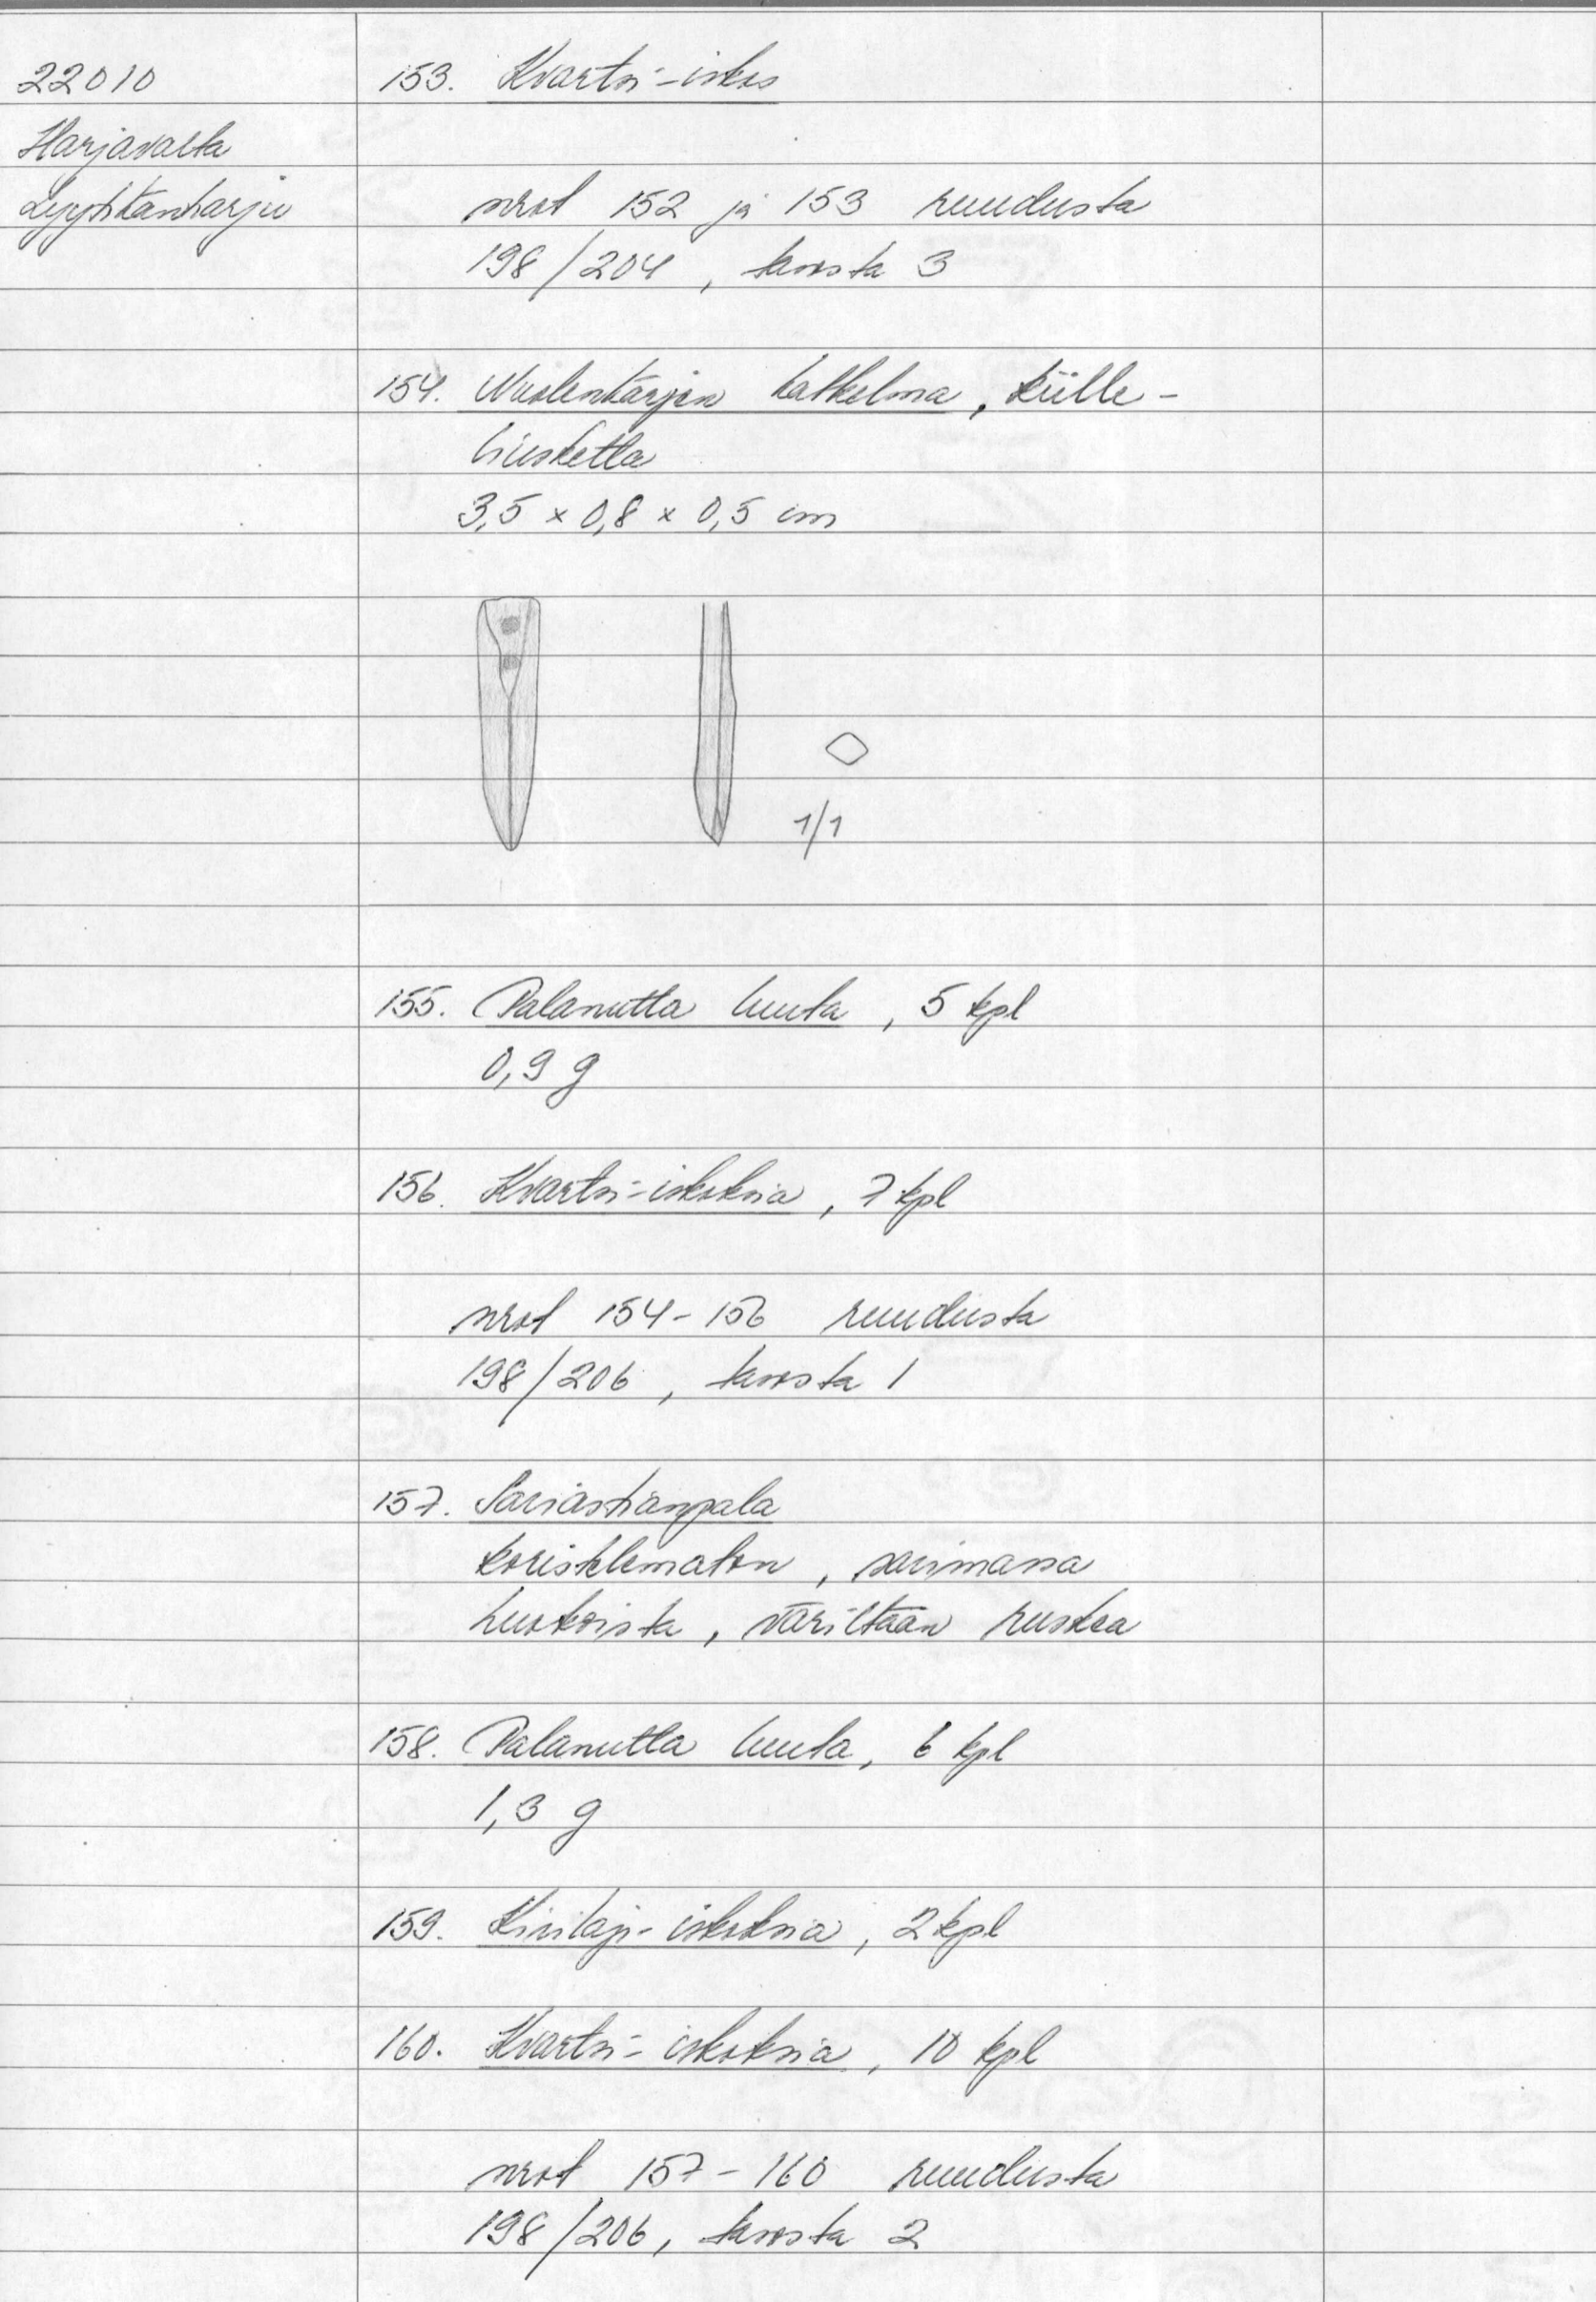 22010
Harjavalta
Lyytikänharju
153. Kvartsi-iskos
nrot 152 ja 153 ruudusta
198/204, tasosta 3
154. Nuolenkärjen katkelma, kiille-
liusketta
3,5 x 0,8 x 0,5 cm
1/1
155. Palanutta luuta, 5 kpl
0,9 g
156. Kvartsi-iskoksia, 7 kpl
nrot 154-156 ruudusta
198/206, tasosta 1
157. Saviastianpala
koristelematon, savimassa
huokoista, väriltään ruskea
158. Palanutta luuta, 6 kpl
1,3 g
159. Kivilaji-iskoksia, 2 kpl
160. Kvartsi-iskoksia, 10 kpl
nrot 157-160 ruudusta
198/206, tasosta 2